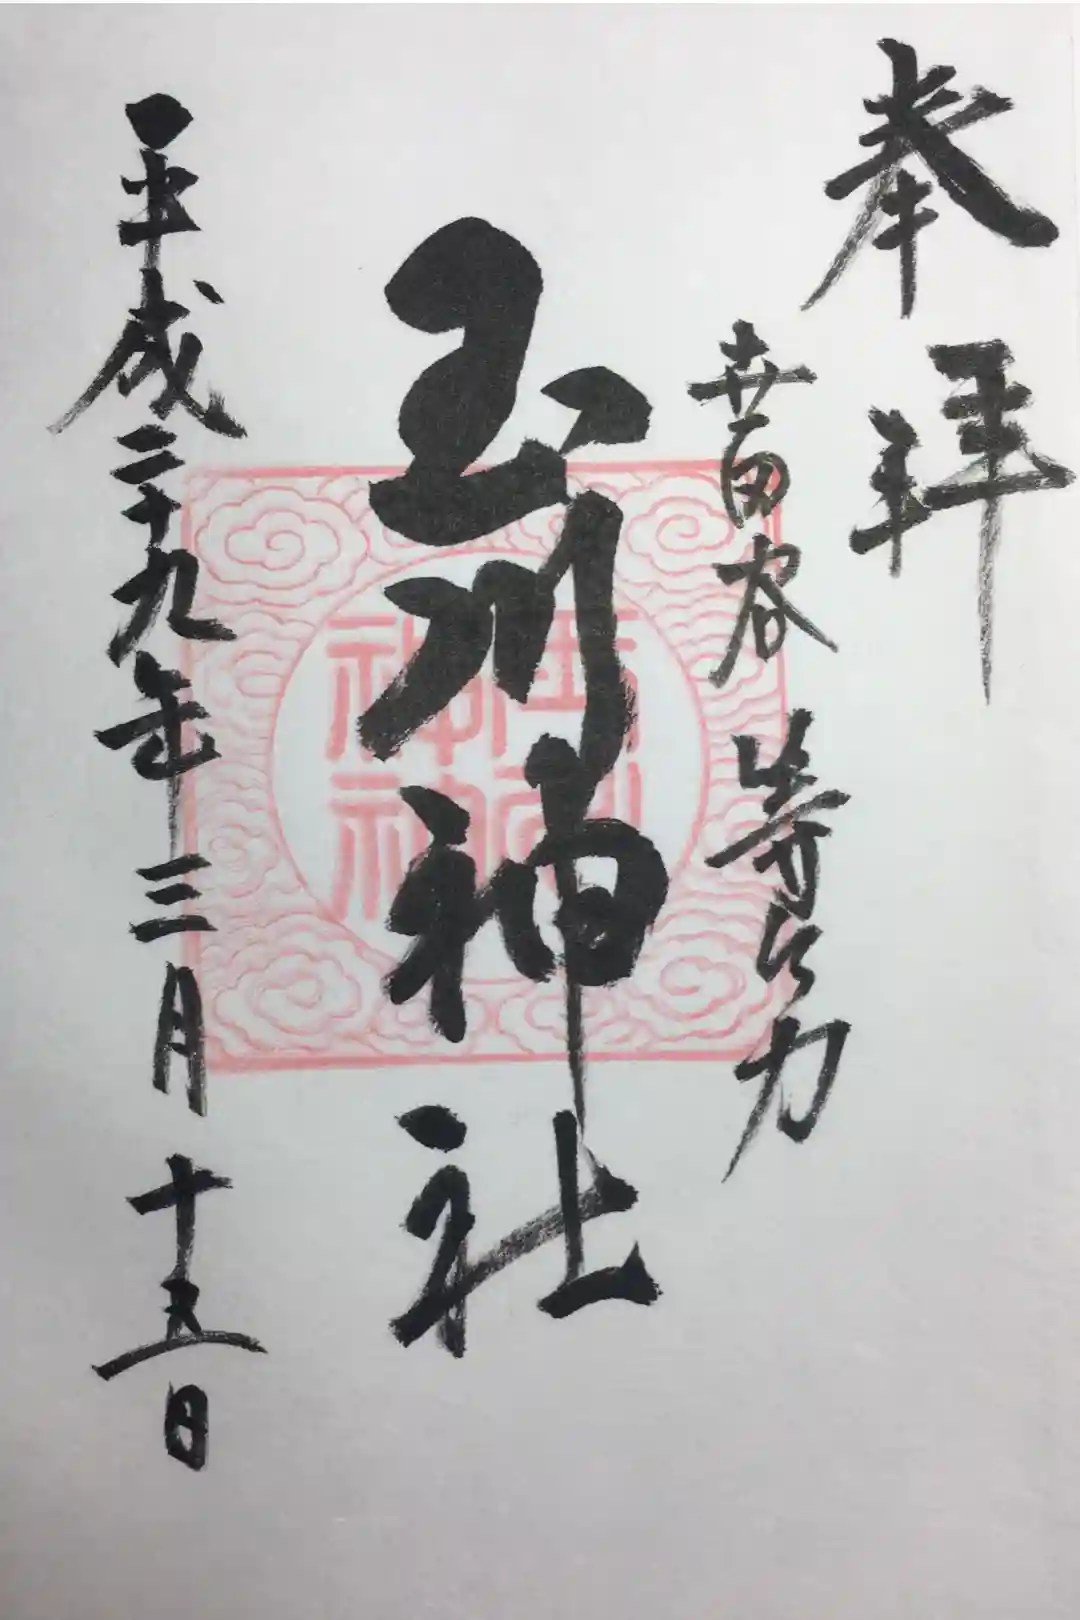 奉拝
世田谷 等々力
玉川神社
玉川神社
平成二十九年三月十五日